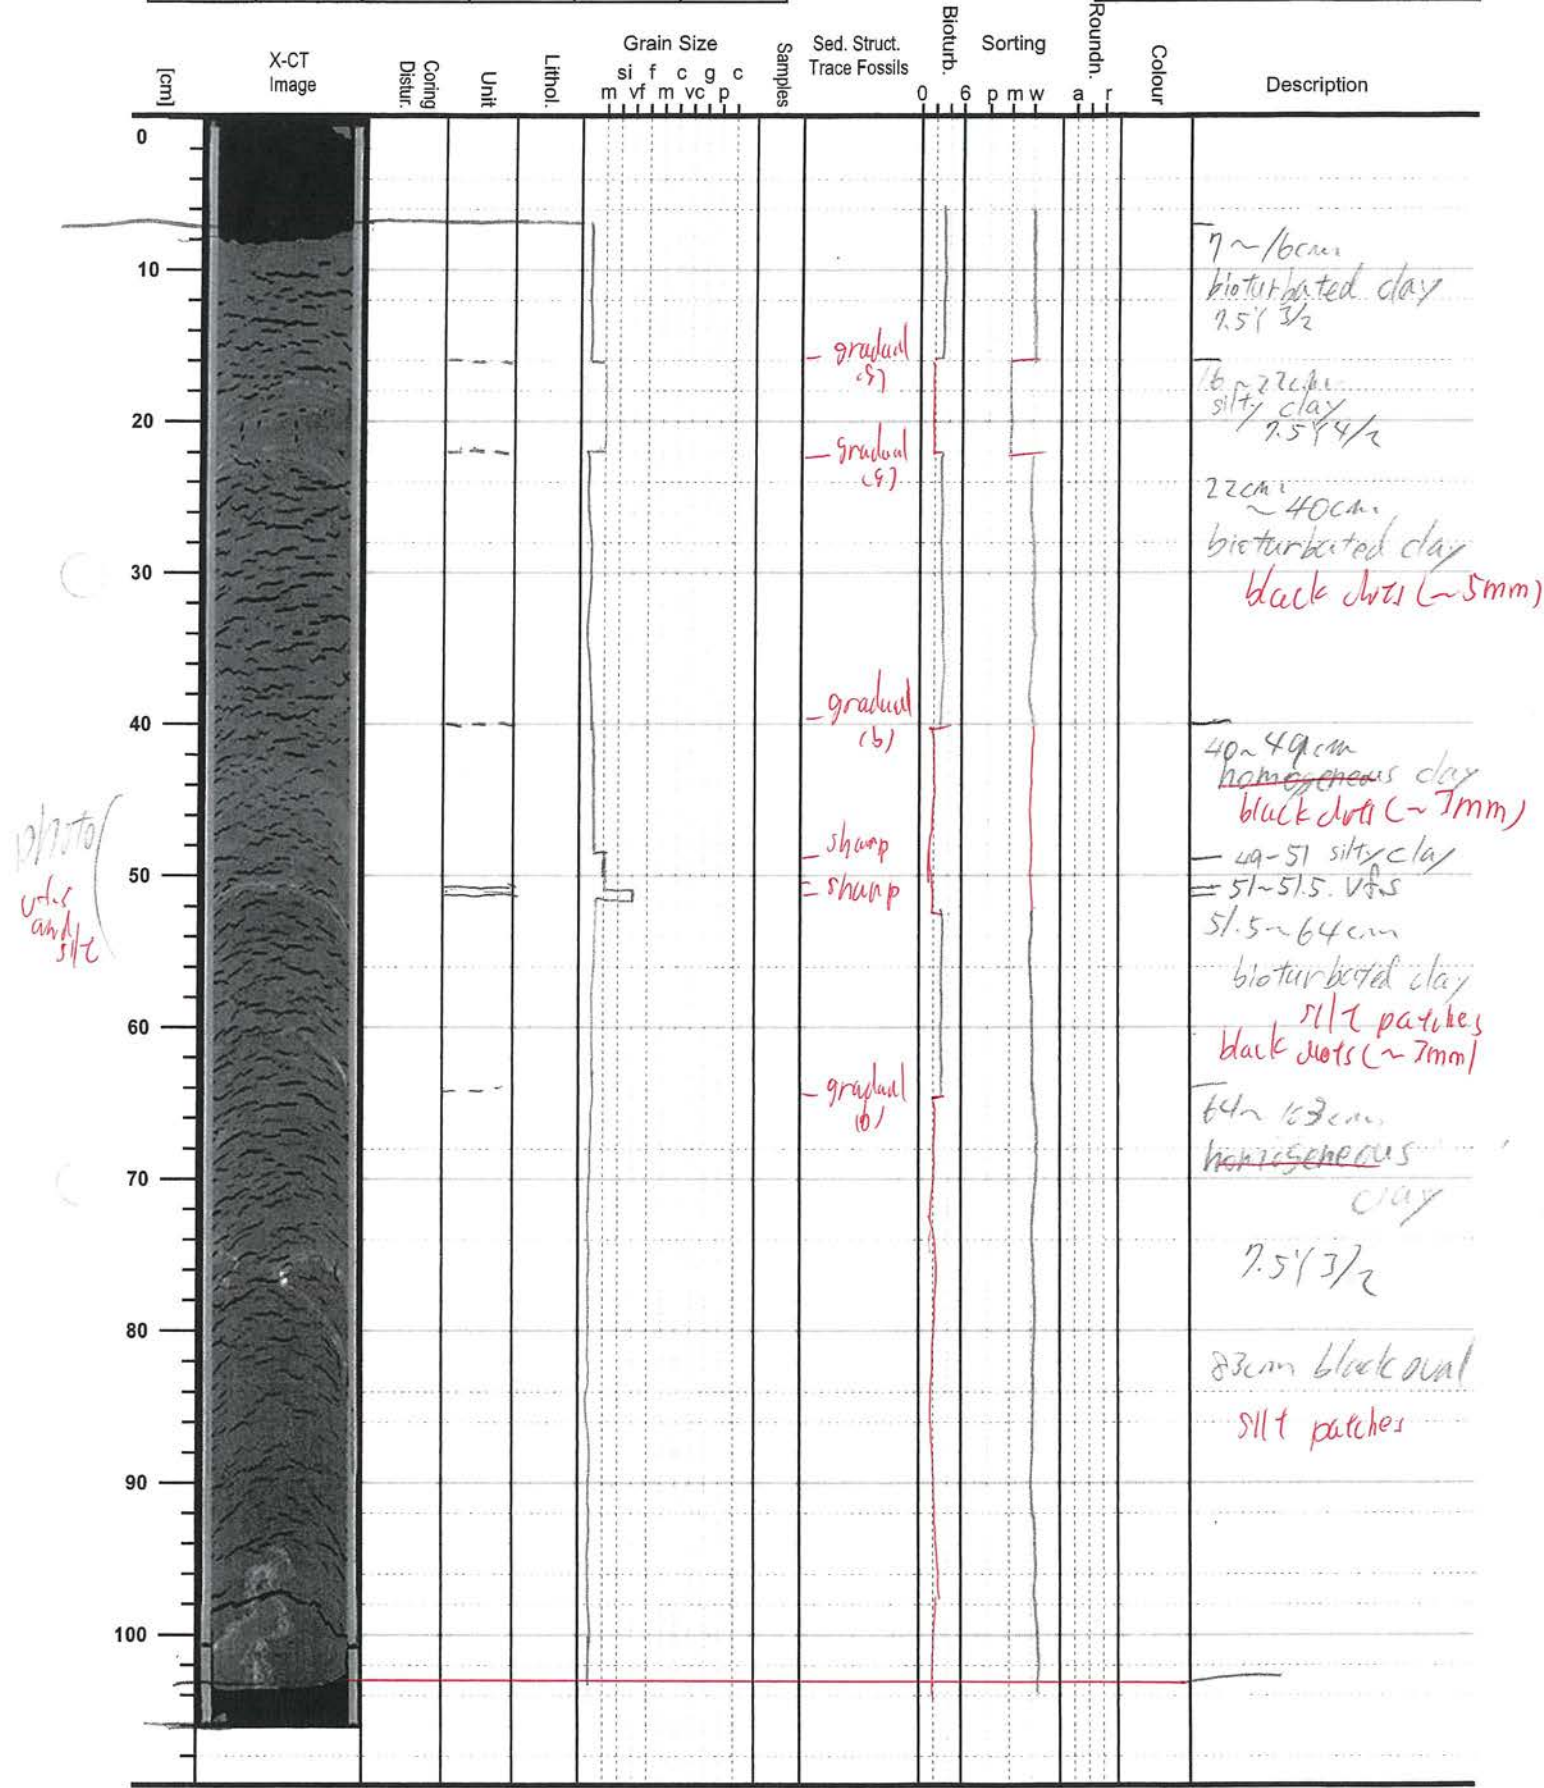 [cm]
X-CT
Image
Coring
Distur.
Unit
Lithol.
Grain Size
si f c g c
m vf m vc p
Samples
Sed. Struct.
Trace Fossils
Bioturb.
0 6
Sorting
p m w
Roundn.
a r
Colour
Description
0
10
20
30
40
50
60
70
80
90
100
photo
vfs
and
silt
gradual
gradual
gradual
(b)
sharp
sharp
gradual
(b)
7~16cm
bioturbated clay
7.5Y 3/2
16~22cm
silty clay
7.5Y4/2
22cm
~40cm
bioturbated clay
black dots (~5mm)
40~49cm
homogeneous clay
black dots (~3mm)
49-51 silty clay
51~51.5. vfs
51.5~64cm
bioturbated clay
silt patches
black dots (~3mm)
64~103cm
homogeneous
clay
7.5Y3/2
83cm black oval
silt patches